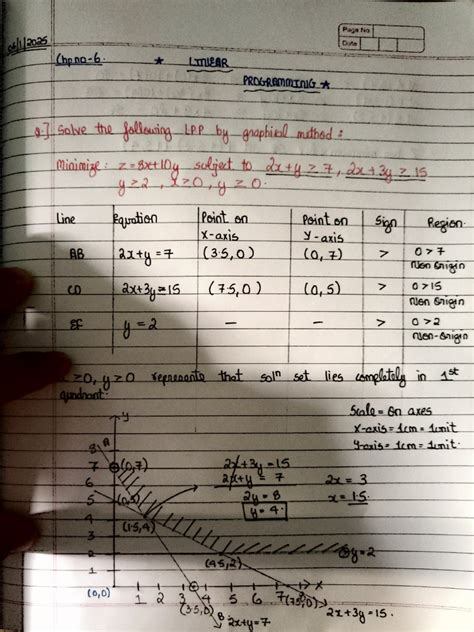 Page No.
Date
06/1/2025
Chp no-6. * LINEAR
PROGRAMMING *
Q-] Solve the following LPP by graphical method :
Minimize: z=8x+10y subject to 2x+y ≥ 7, 2x+3y ≥ 15
y ≥ 2, x ≥ 0, y ≥ 0.
Line Equation Point on x-axis Point on y-axis Sign Region.
AB 2x+y=7 (3.5,0) (0,7) ≥ 0 > 7 Non Origin
CD 2x+3y=15 (7.5,0) (0,5) ≥ 0 > 15 Non Origin
EF y=2 — — ≥ 0 > 2 Non-Origin
x ≥ 0, y ≥ 0 represents that solⁿ set lies completely in 1st
quadrant.
Scale = On axes
X-axis = 1cm = 1unit
Y-axis = 1cm = 1unit
y
A
8
7 (0,7)
6
5 (0,5)
4
(1.5,4)
3
2
1
2x+3y=15
2x+y=7
2y=8
y=4.
2x=3
x=1.5.
y=2
(4.5,2)
(0,0) 1 2 3 4 5 6 7 (7.5,0) x
(3.5,0)
B 2x+y=7
2x+3y=15.